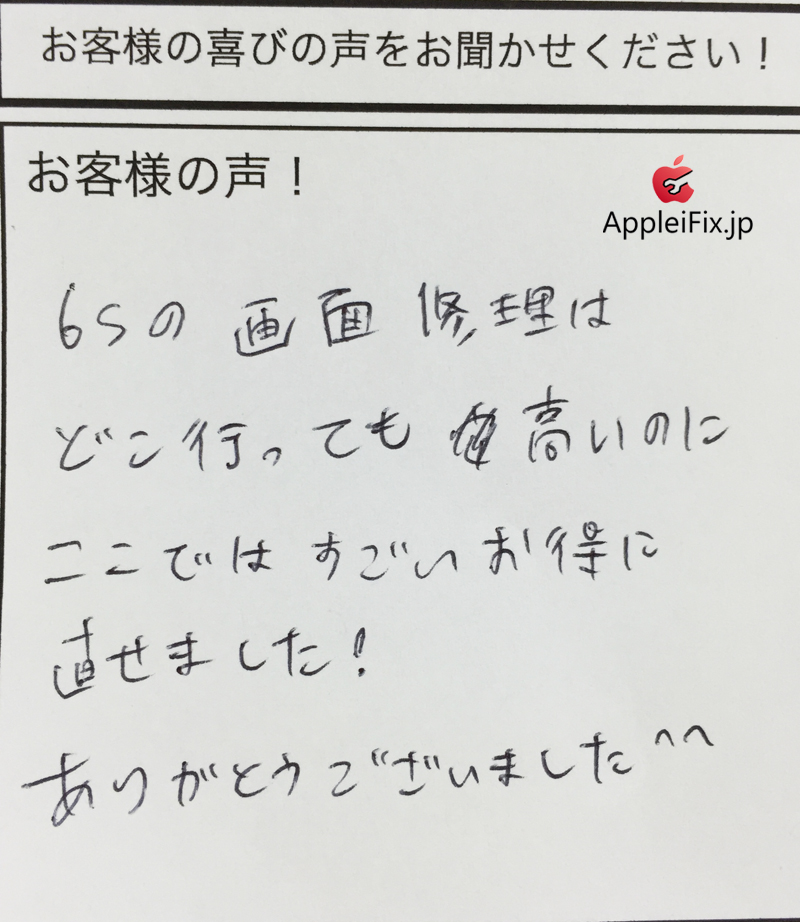 お客様の喜びの声をお聞かせください！
お客様の声！
AppleiFix.jp
6sの画面修理は
どこ行っても高いのに
ここではすごいお得に
直せました！
ありがとうございました^^